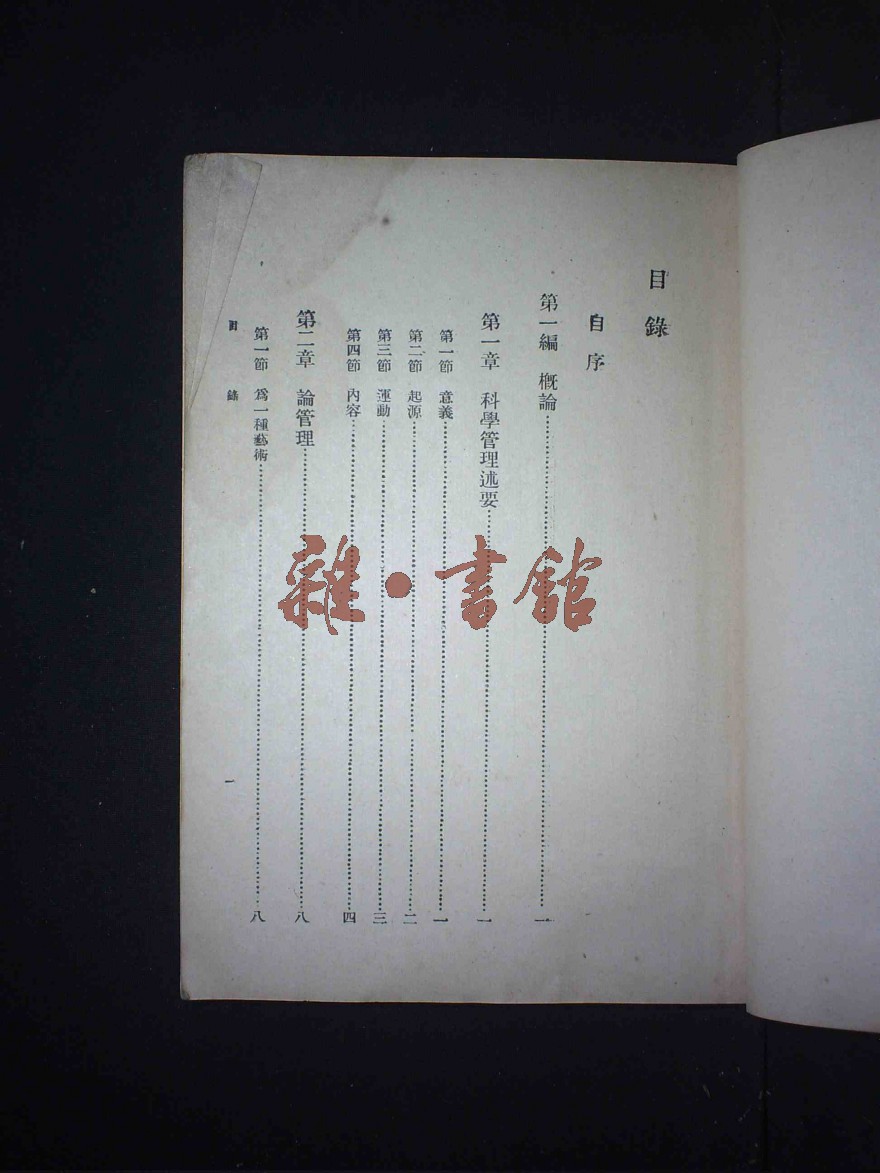 目錄
自序
第一編 概論……一
第一章 科學管理述要……一
第一節 意義……一
第二節 起源……二
第三節 運動……三
第四節 內容……四
第二章 論管理……八
第一節 爲一種藝術……八
目錄 一
雜·書館